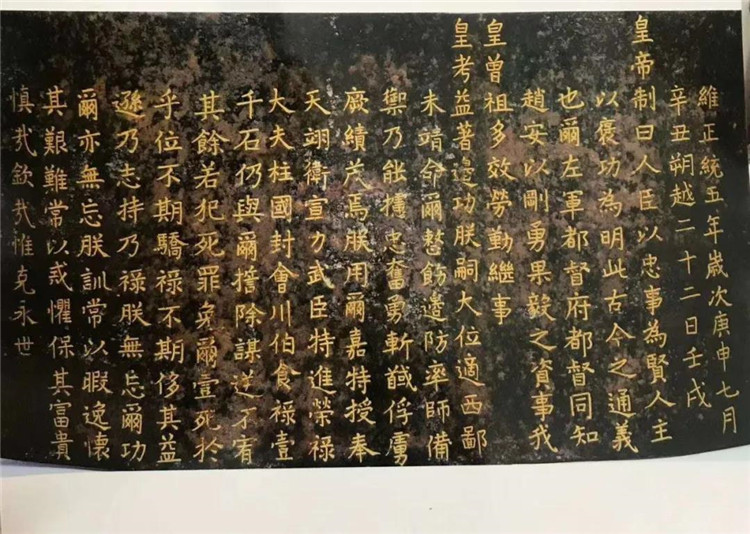 維正統五年歲次庚申七月
辛丑朔越二十二日壬戌
皇帝制曰人臣以忠事為賢人主
以褒功為明此古今之通義
也爾左軍都督府都督同知
趙安以剛勇果毅之資事我
皇曾祖多效勞勤繼事
皇考益著邊功朕嗣大位適西鄙
未靖命爾整飭邊防率師備
禦乃能攄忠奮勇斬馘俘虜
厥績茂焉朕用爾嘉特授奉
天翊衛宣力武臣特進榮祿
大夫柱國封會川伯食祿壹
千石仍與爾誓除謀逆不宥
其餘若犯死罪免爾壹死於
乎位不期驕祿不期侈其益
遜乃志持乃祿朕無忘爾功
爾亦無忘朕訓常以暇逸懷
其艱難常以戒懼保其富貴
慎哉欽哉惟克永世